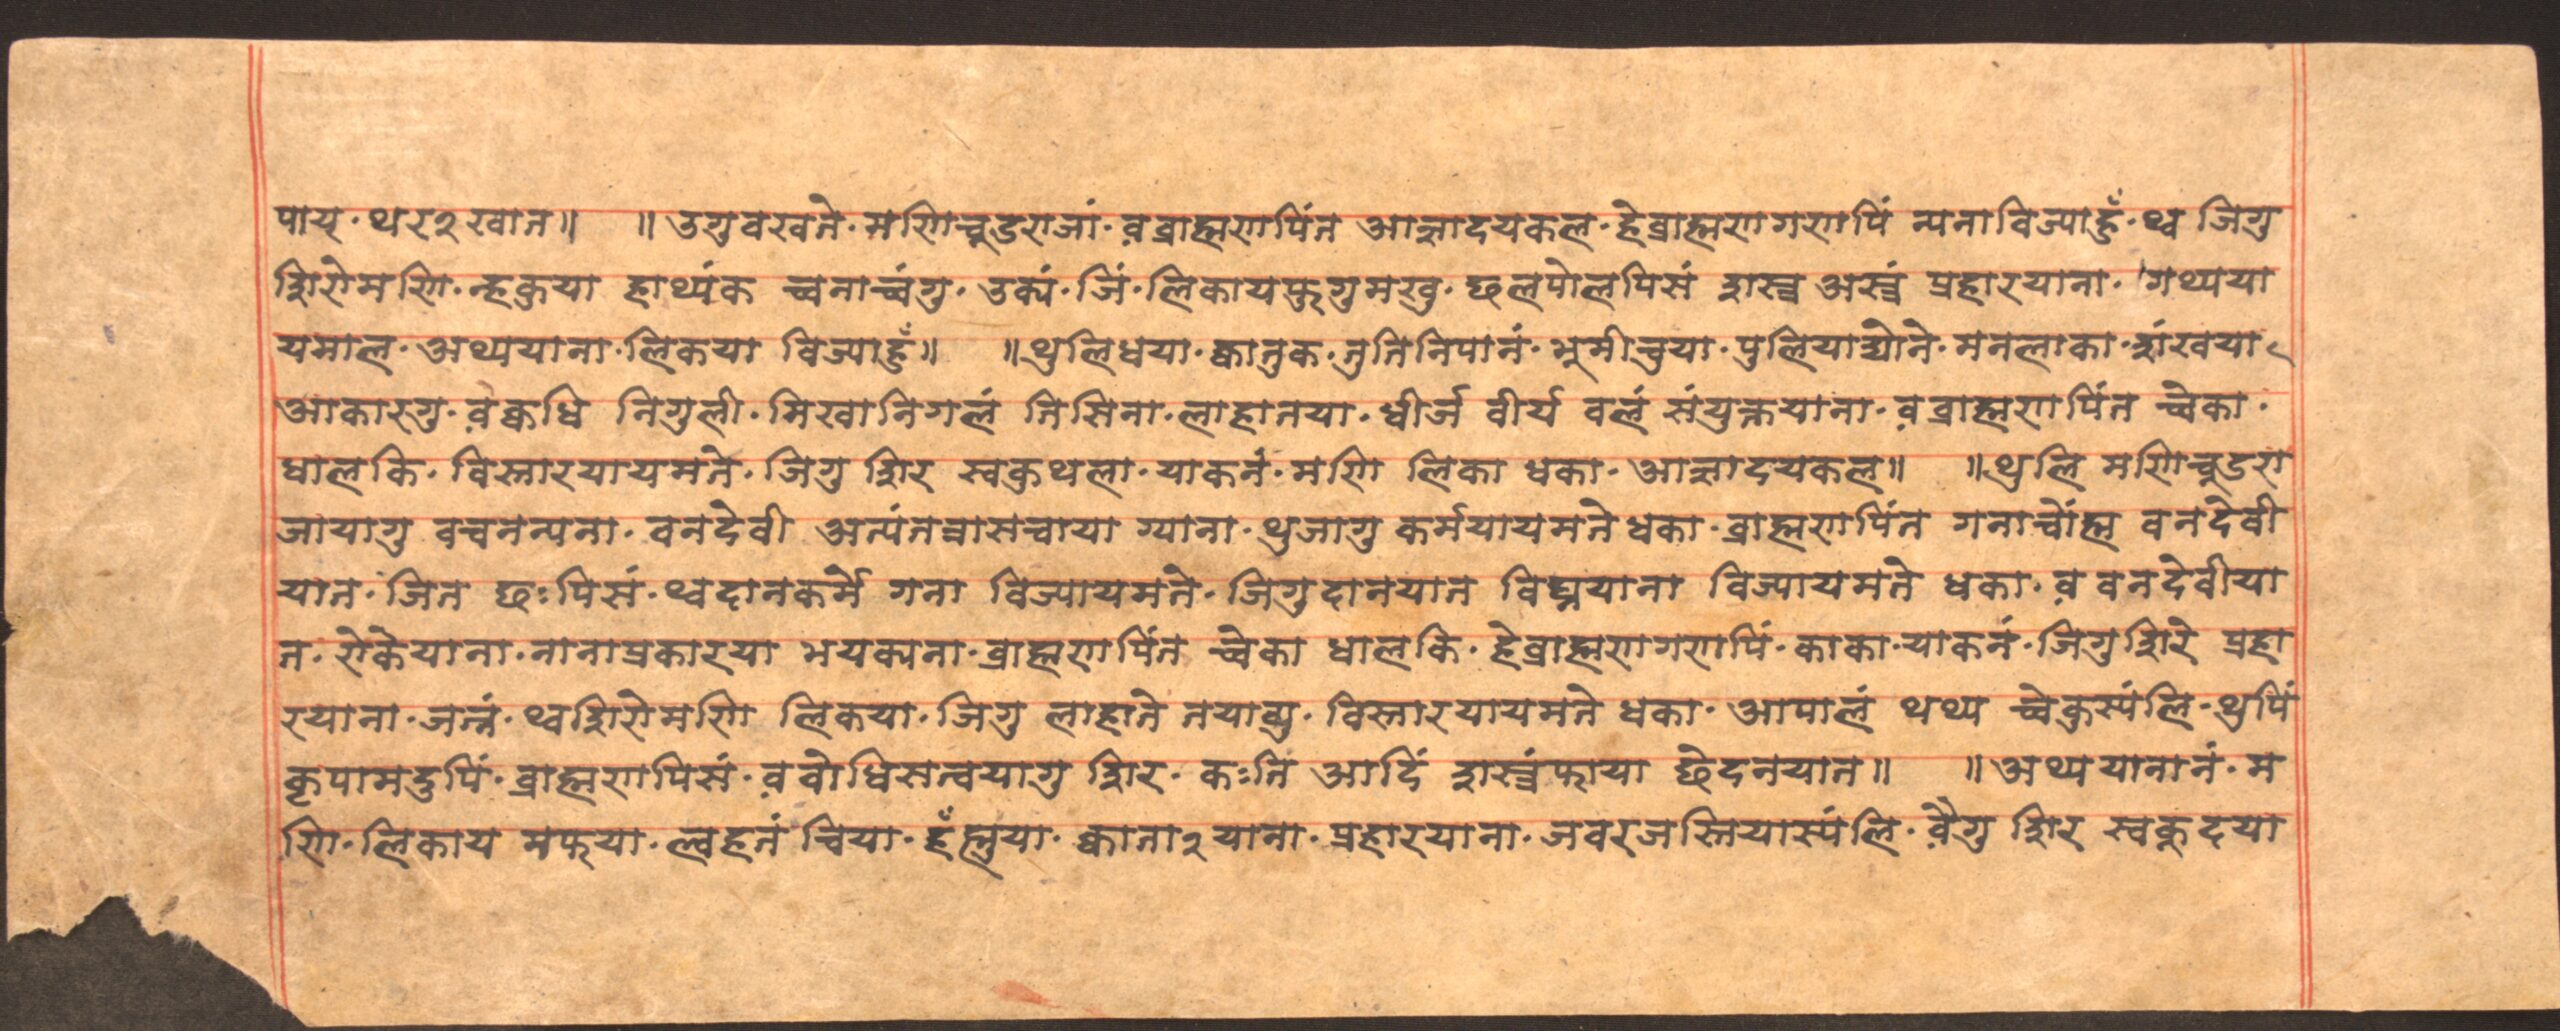 पाय्·थर२खात॥ ॥उगुवखते·मणिचूडराजां·व़ब्राह्मणपिंत आज्ञादयकल·हेब्राह्मणगणपिं न्यनाविज्याहुँ·थ्व जिगु
शिरोमणि·न्हकुया हाथ्यंक च्वनाच्वंगु·उक्यं·जिं·लिकायफुगुमखु·छलपोलपिसं शस्त्र अस्त्रं प्रहारयाना·गथ्यया
यमाल·अथ्ययाना·लिकया विज्याहुँ॥ ॥थुलिधया·क्वातुक·तुतिनिपानं·भूमीचुया·पुलियाद्योने·मनलाका·शंखया
आकारगु·व़क्वधि निगुली·मिखानिगलं तिसिना·लाहातया·धीर्ज वीर्य वलं संयुक्तयाना·व़ब्राह्मणपिंत च्वेका·
धालकि·विस्तारयायमते·जिगु शिर स्वकुथला·याकनं·मणि लिका धका·आज्ञादयकल॥ ॥थुलि मणिचूडरा
जायागु वचनन्यना·वनदेवी अत्यंतत्रासचाया ग्याना·थुजागु कर्मयायमतेधका·ब्राह्मणपिंत गनाच्वोंह्म वनदेवी
यात·जित छःपिसं·थ्वदानकर्मे गना विज्यायमते·जिगुदानयात विघ्नयाना विज्यायमते धका·व़ वनदेवीया
त·रोकेयाना·नानाप्रकारया भयक्यना·ब्राह्मणपिंत च्वेका धालकि·हेब्राह्मणगणपिं·काका·याकनं·जिगुशिरे प्रहा
रयाना·जन्नं·थ्वशिरोमणि लिकया·जिगु लाहाते तयाब्यु·विस्तारयायमते धका·आपालं थथ्य च्वेकुस्यंलि·थुपिं
कृपामदुपिं·ब्राह्मणपिसं·व़वोधिसत्वयागु शिर·कःति आदिं शस्त्रंफाया छेदनयात॥ ॥अथ्ययानानं·म
णि·लिकाय मफया·ल्वहनं चिया·हँह्लुया·क्वाता२याना·प्रहारयाना·जवरजस्तियास्यंलि·व़ैगु शिर स्वकूदया